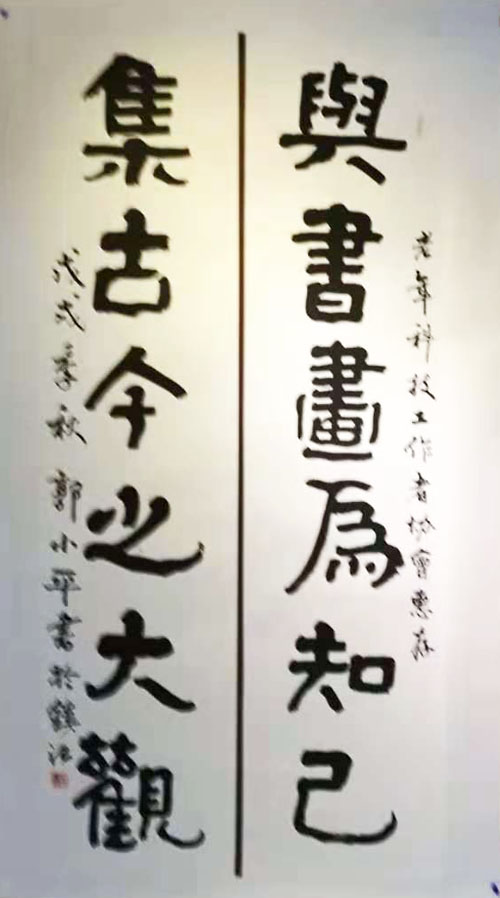 老年科技工作者协會惠存
與書畫爲知己
集古今之大觀
戊戌季秋 郭小平書於鎮江